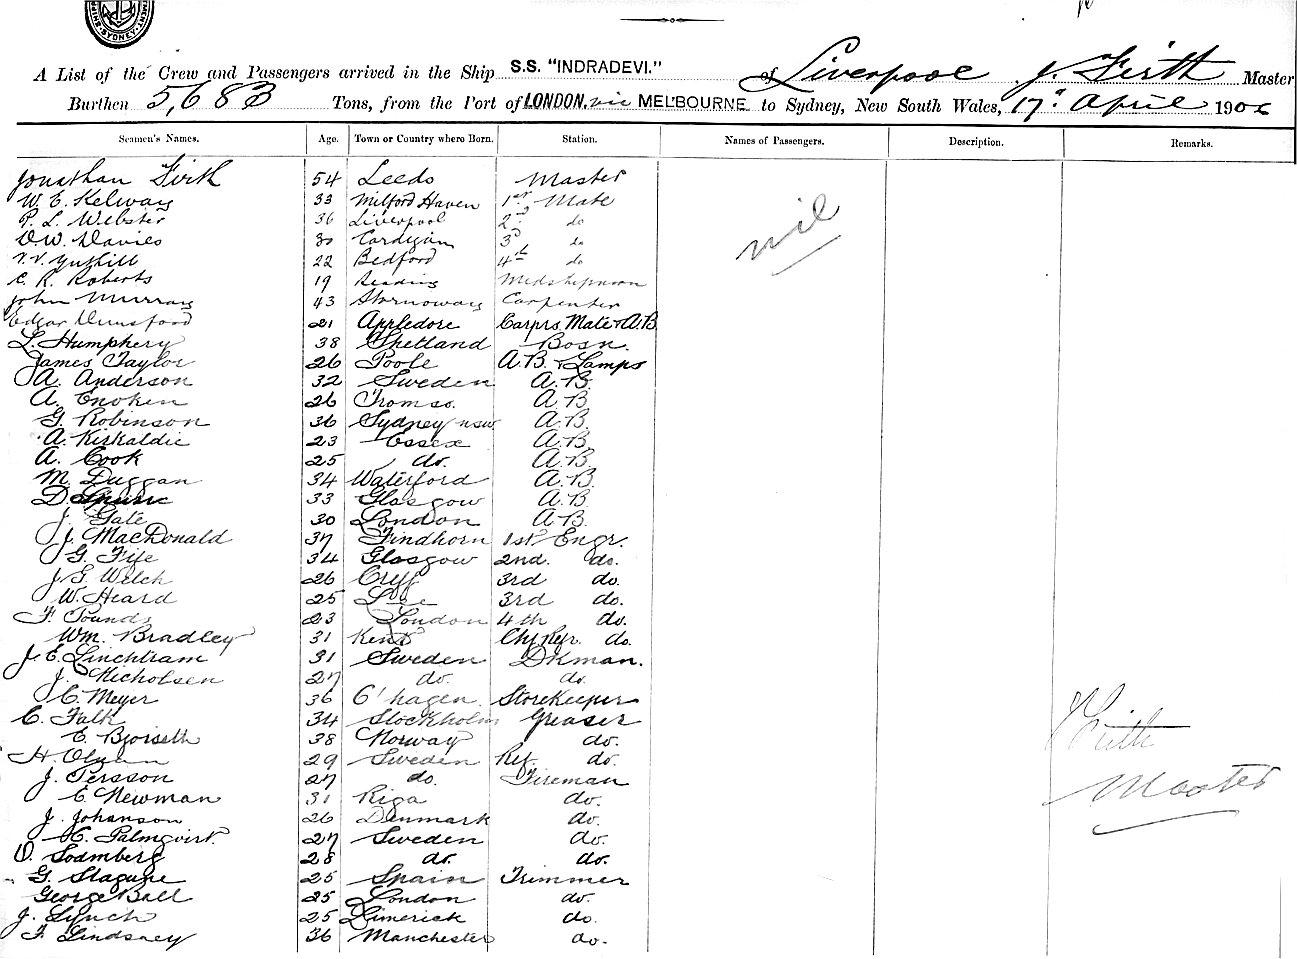 A List of the Crew and Passengers arrived in the Ship S.S. "INDRADEVI." of Liverpool J. Firth Master
Burthen 5,683 Tons, from the Port of LONDON. via MELBOURNE to Sydney, New South Wales, 17th April 190
Seamen's Names. Age. Town or Country where Born. Station. Names of Passengers. Description. Remarks.
Jonathan Firth 54 Leeds Master
W. E. Kelway 33 Milford Haven 1st Mate
P. L. Webster 36 Liverpool 2nd do
D. W. Davies 30 Cardigan 3d do
nil
Tuthill 22 Bedford 4th do
C. R. Roberts 19 Reading Midshipman
John Murray 43 Stornoway Carpenter
Edgar Dunsford 21 Appledore Carprs Mate + A.B.
L. Humphery 38 Shetland Bosn.
James Taylor 26 Poole A.B. + Lamps
A. Anderson 32 Sweden A.B.
A. Enoken 26 Tromso. A.B
G. Robinson 36 Sydney NSW A.B.
A. Kirkaldie 23 Essex A.B.
A. Cook 25 do. A.B.
M. Duggan 34 Waterford A.B.
D. 33 Glasgow A.B
J. Gate 30 London A.B.
J. MacDonald 37 Findhorn 1st Engr.
G. Fife 34 Glasgow 2nd. do.
J. G. Welch 26 Crieff 3rd do.
W. Heard 25 Lee 3rd do.
F. Pounds 23 London 4th do.
Wm. Bradley 31 Kent Chf Refr. do.
J. E. Linchtram 31 Sweden Dkman.
J. Nicholsen 27 do. do.
C. Meyer 36 C'hagen. Storekeeper
C. Falk 34 Stockholm Greaser
J Firth
E. Bjorseth 38 Norway do.
H. 29 Sweden Ref. do.
J. Persson 27 do. Fireman
Master
C. Newman 31 Riga do.
J. Johanson 26 Denmark do.
H. Palmqvist. 27 Sweden do.
O. Sodmberg 28 do. do.
G. 25 Spain Trimmer
George Ball 25 London do.
J. Lynch 25 Limerick do.
F. Lindsney 36 Manchester do.